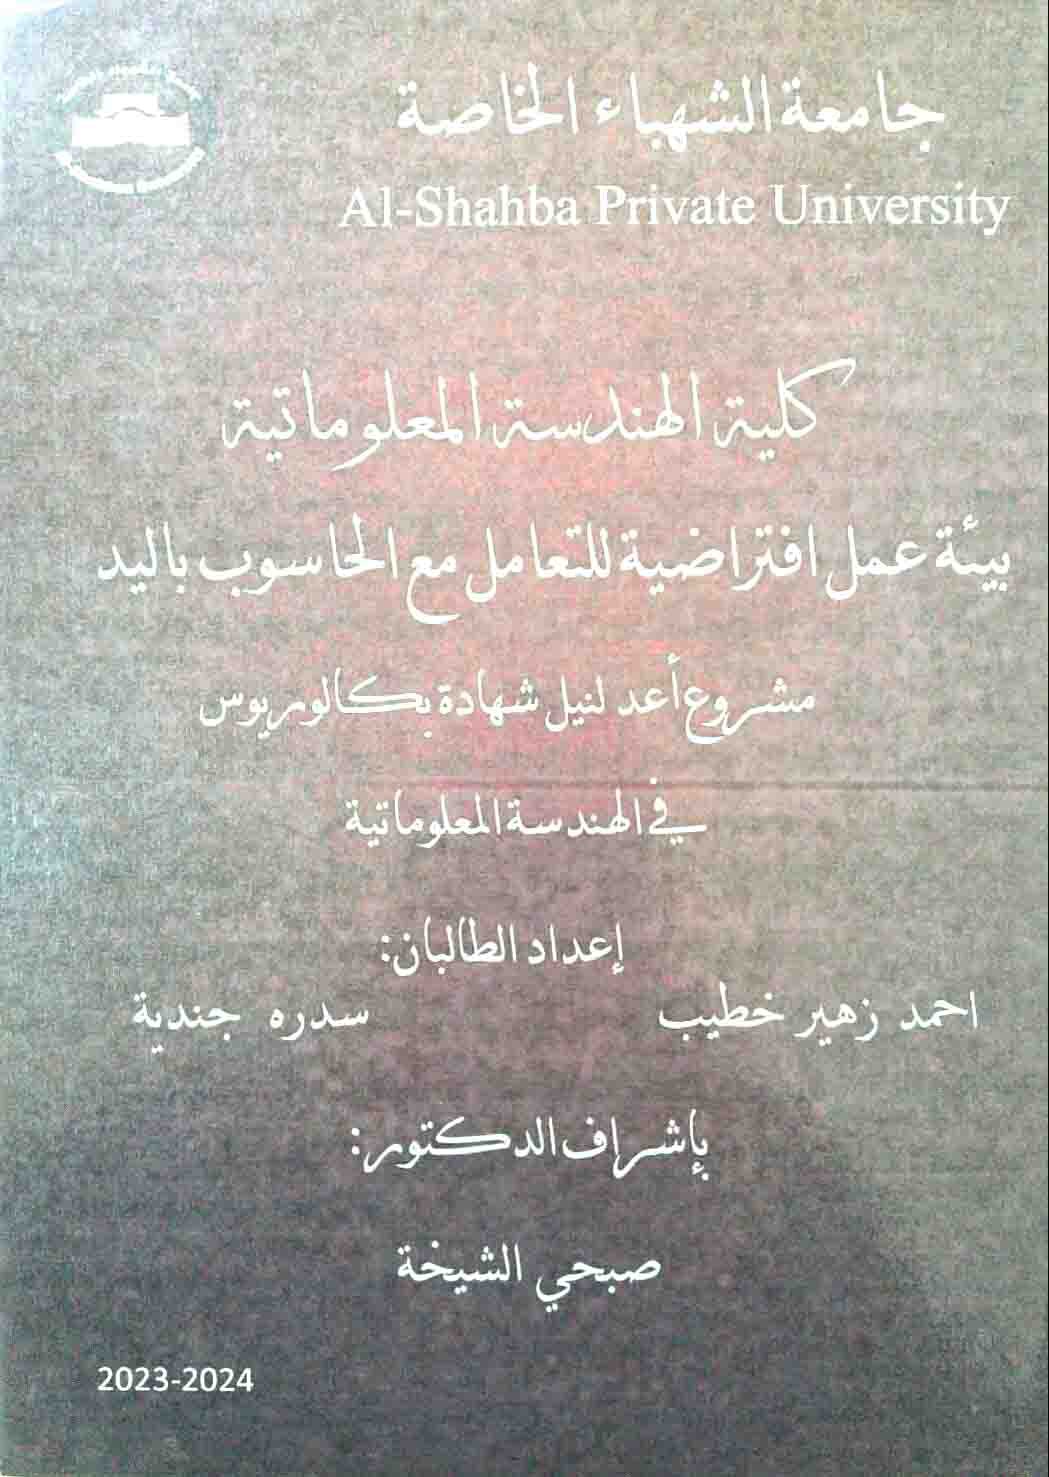 جامعة الشهباء الخاصة
Al-Shahba Private University
كلية الهندسة المعلوماتية
بيئة عمل افتراضية للتعامل مع الحاسوب باليد
مشروع أعد لنيل شهادة بكالوريوس
في الهندسة المعلوماتية
إعداد الطالبان:
احمد زهير خطيب سدره جندية
بإشراف الدكتور:
صبحي الشيخة
2023-2024